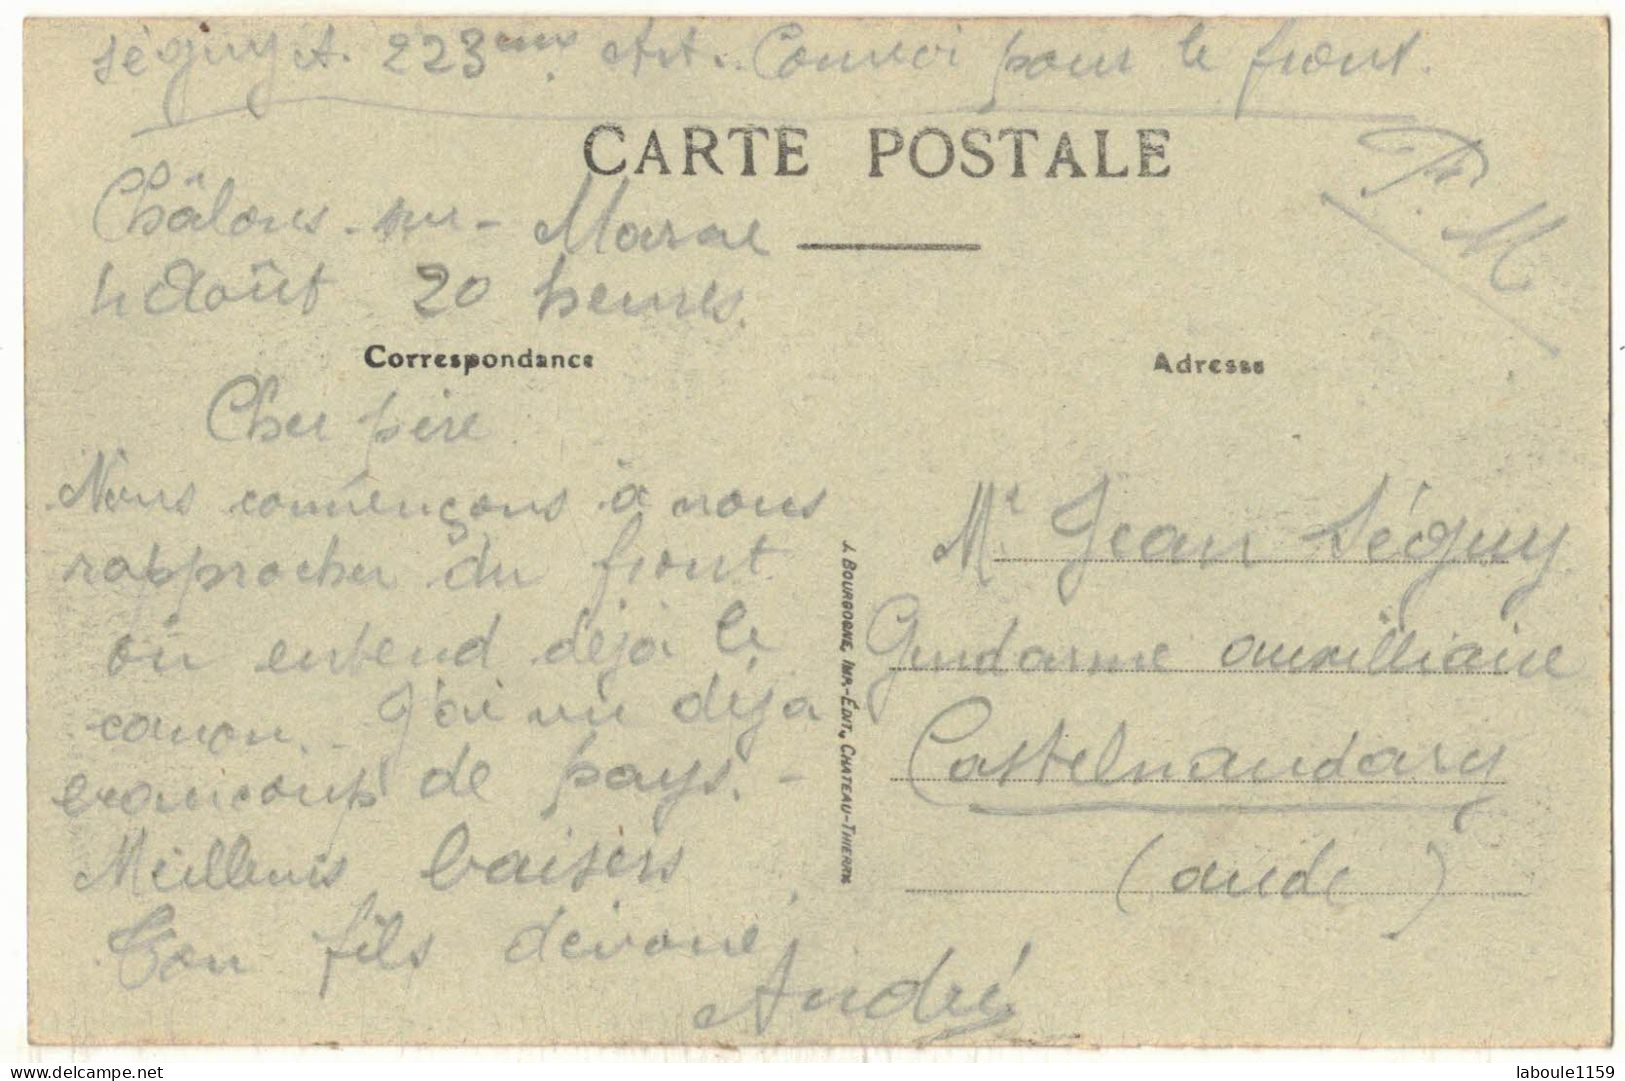 Séguy A. 223eme Art.. Convoi pour le front.
CARTE POSTALE
F. M
Châlons-sur-Marne
4 Août 20 heures.
Correspondance
Cher père
Nous commençons à nous
rapprocher du front
on entend déjà le
canon. J'ai vu déjà
beaucoup de pays. -
Meilleurs baisers
Ton fils dévoué
André
J. BOURGOGNE, IMP.-ÉDIT., CHATEAU-THIERRY
Adresse
Mr Jean Séguy
Gendarme auxilliaire
Castelnaudary
(aude)
laboule1159